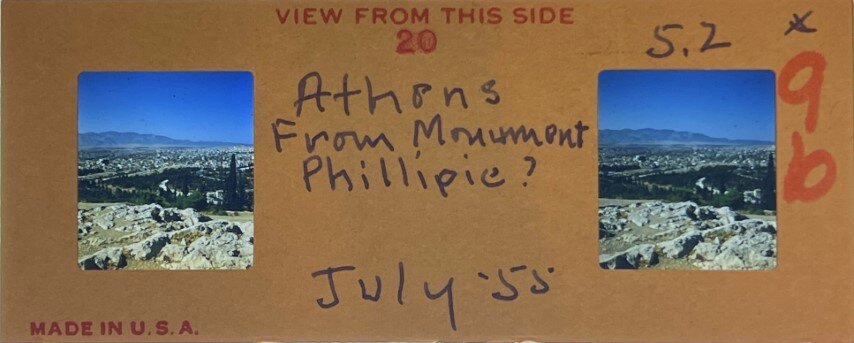 VIEW FROM THIS SIDE
20
5.2 x
9
b
Athens
From Monument
Phillipie?
July '55
MADE IN U.S.A.